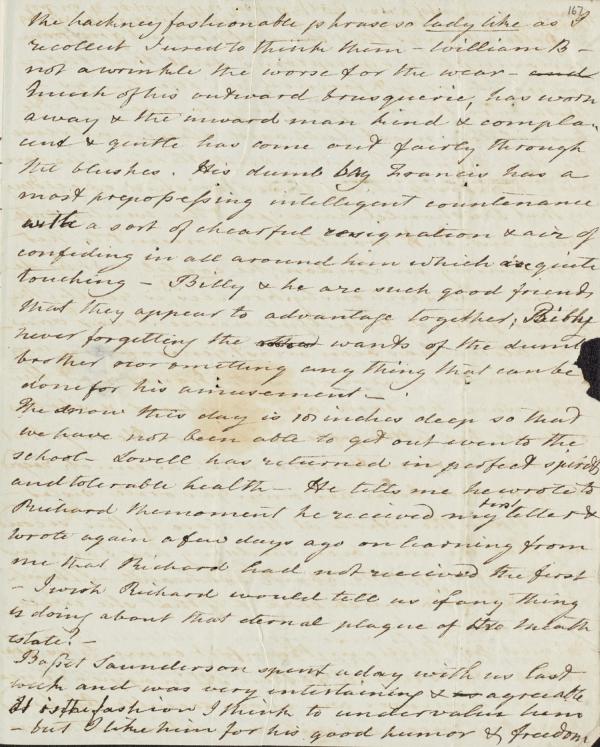 167
the hackney fashionable phrase so lady like as I
recollect I used to think them - William B -
not a wrinkle the worse for the wear - and
Much of his outward brusquerie, has worn
away & the inward man kind & complai
cent & gentle has come out fairly through
the blushes. His dumb boy Francis has a
most prepossessing intelligent countenance
with a sort of chearful resignation & air of
confiding in all around him which is quite
touching - Billy & he are such good friends
that they appear to advantage together; Billy
never forgetting the wants of the dumb
brother nor omitting any thing that can be
done for his amusement -
The snow this day is 10 inches deep so that
we have not been able to get out even to the
school - Lovell has returned in perfect spirits
and tolerable health - He tells me he wrote to
Richard the moment he received my first letter &
wrote again a few days ago on learning from
me that Richard had not received the first
- I wish Richard would tell us if any thing
is doing about that eternal plague of the Meath
estate? -
Basset Saunderson spent a day with us last
week and was very entertaining & agreeable
It is the fashion I think to undervalue him
- but I like him for his good humor & freedom